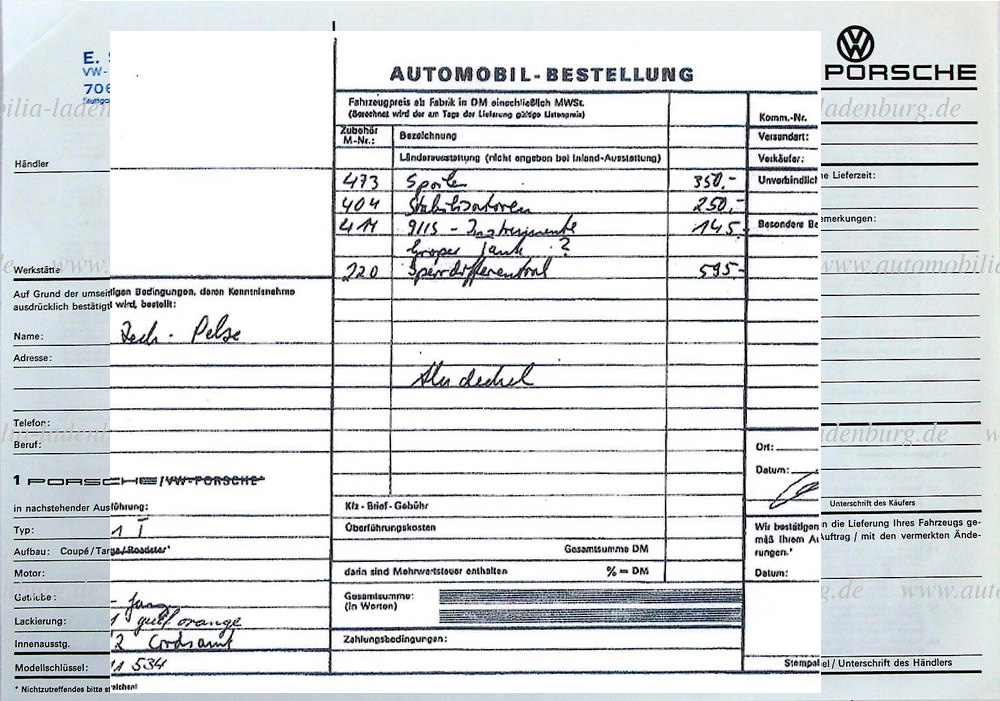 E.
VW-
706
Stuttgar
VW
PORSCHE
AUTOMOBIL-BESTELLUNG
Händler
Werkstätte
Auf Grund der umseitigen Bedingungen, deren Kenntnisnahme
ausdrücklich bestätigt wird, bestellt:
Name: Zech - Pelse
Adresse:
Telefon:
Beruf:
1 PORSCHE/VW-PORSCHE*
in nachstehender Ausführung:
Typ: 1 T
Aufbau: Coupé/Targa/Roadster*
Motor:
Getriebe:
Lackierung: 1 gulf orange
Innenausstg. 2 Cordsamt
Modellschlüssel: 11 534
* Nichtzutreffendes bitte streichen!
Fahrzeugpreis ab Fabrik in DM einschließlich MWSt.
(Berechnet wird der am Tage der Lieferung gültige Listenpreis)
Zubehör M-Nr.: Bezeichnung
Länderausstattung (nicht angeben bei Inland-Ausstattung)
473 Spoiler 350,-
404 Stabilisatoren 250,-
411 911S - Instrumente 145,-
Großer Tank ?
220 Sperrdifferential 595,-
Kfz - Brief - Gebühr
Überführungskosten
Gesamtsumme DM
darin sind Mehrwertsteuer enthalten % = DM
Gesamtsumme:
(in Worten)
Zahlungsbedingungen:
Komm.-Nr.
Versandart:
Verkäufer:
Unverbindlich e Lieferzeit:
Besondere Be emerkungen:
Ort:
Datum:
Unterschrift des Käufers
Wir bestätigen n die Lieferung Ihres Fahrzeugs ge-
mäß Ihrem Auftrag / mit den vermerkten Ände-
rungen.*
Datum:
Stempel / Unterschrift des Händlers
www.automobilia-ladenburg.de